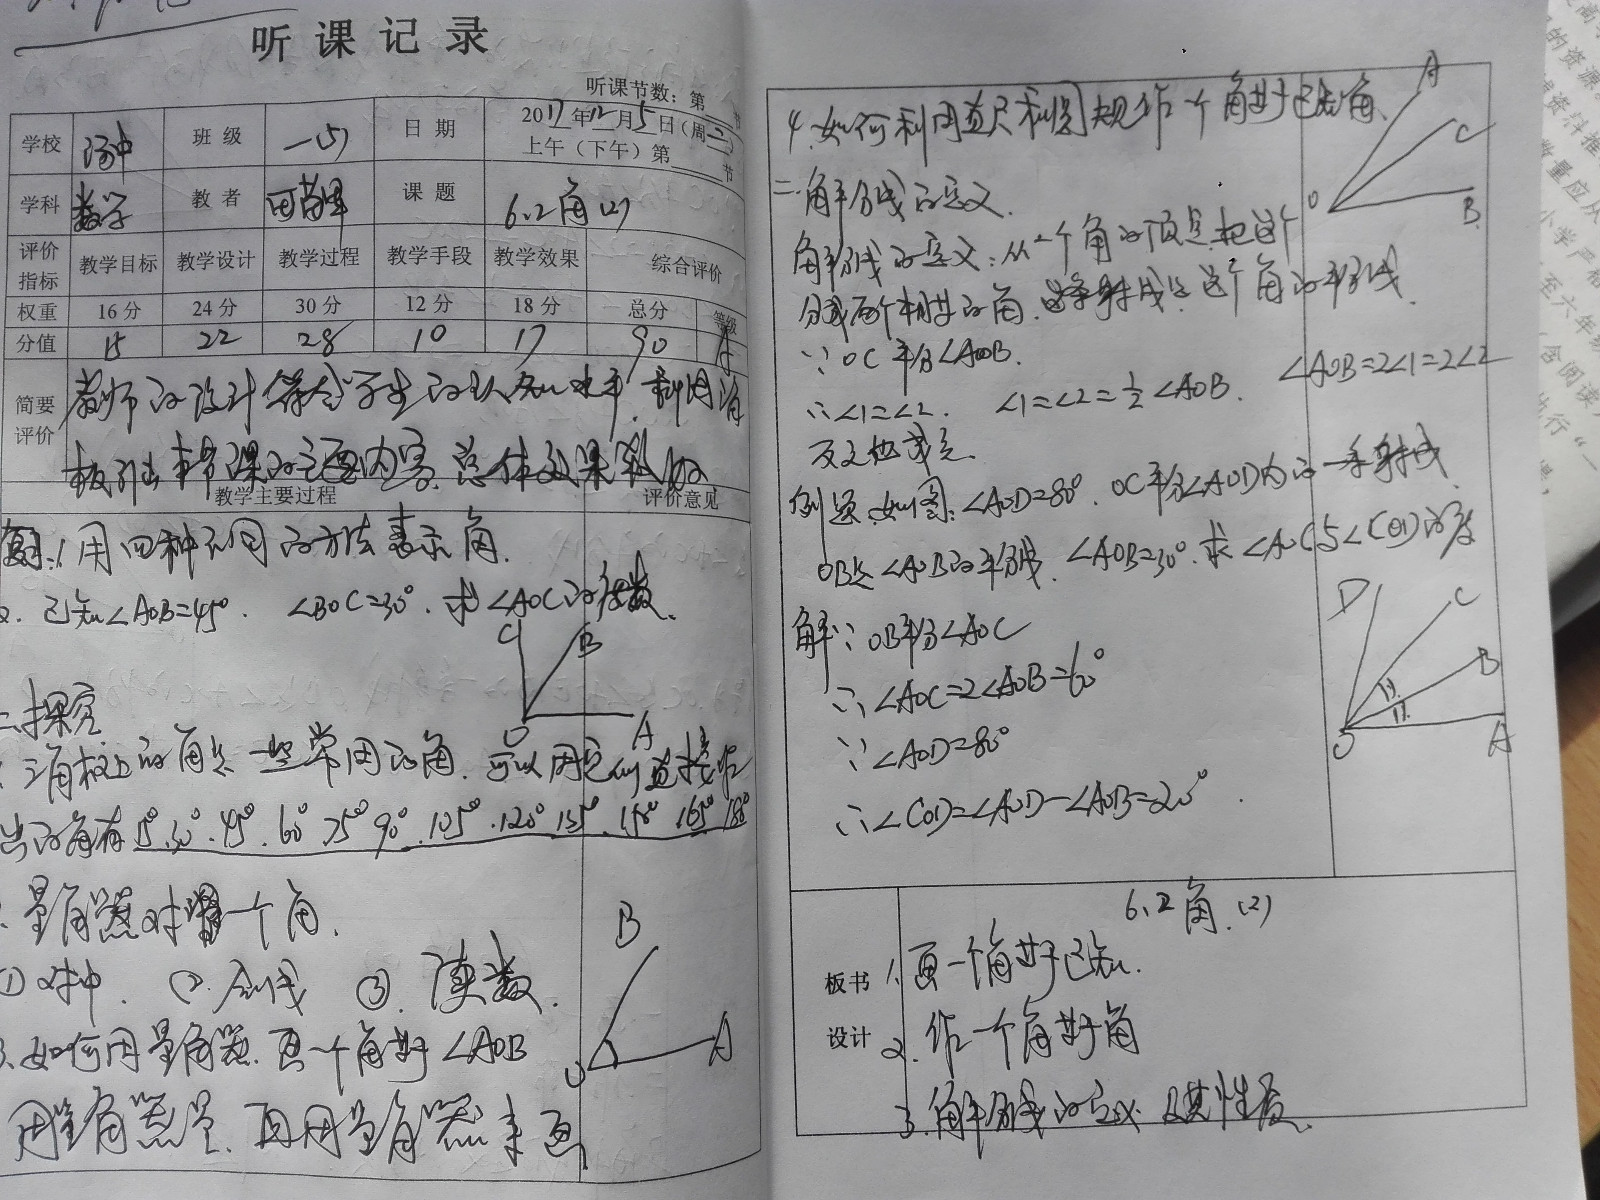 听课记录
听课节数：第 节
学校 汤中 班级 一(5) 日期 2017年12月5日(周二)
上午（下午）第 节
学科 数学 教者 课题 6.2角(2)
评价指标 教学目标 教学设计 教学过程 教学手段 教学效果 综合评价
权重 16分 24分 30分 12分 18分 总分 等级
分值 15 22 28 10 17 90 A
简要评价 教师的设计符合学生的认知水平,利用
板引出本节课的主要内容,总体效果
教学主要过程 评价意见
复习:1用四种不同的方法表示角.
2. 已知∠AOB=45°. ∠BOC=30°.求∠AOC的度数.
C B
O A
二、探究
1.三角板上的角是一些常用的角.可以用它们直接作
出的角有15°.30°.45°.60°.75°90°.105°.120°135°.150°.165°180°
2.量角器对准一个角.
①对中. ②合线 ③.读数.
B
3.如何用量角器.画一个角等于∠AOB
O A
用量角器量.再用量角器来画
4.如何利用直尺和圆规作一个角等于已知角.
A
C
O B
二.角平分线的定义.
角平分线的定义:从一个角的顶点.把这个
分成两个相等的角.这条射线是这个角的平分线.
∵OC平分∠AOB.
∴∠1=∠2. ∠1=∠2=½∠AOB. ∠AOB=2∠1=2∠2
反之也成立.
例题.如图:∠AOD=80°.OC平分∠AOD内的一条射线
OB是∠AOB的平分线.∠AOB=30°.求∠AOC与∠COD的度
解:∵OB平分∠AOC
∴∠AOC=2∠AOB=60°
∵∠AOD=80°
∴∠COD=∠AOD-∠AOB=20°.
D C
B
O A
板书设计
6.2角.(2)
1.画一个角等于已知.
2.作一个角等于角
3.角平分线的定义及其性质.